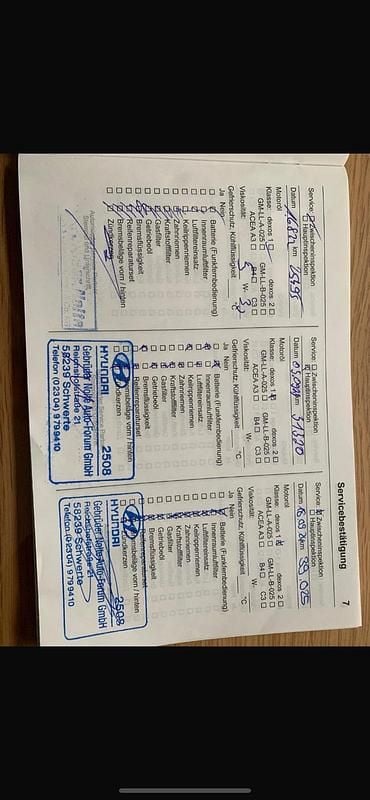 Servicebestätigung 7
Service: Zwischeninspektion
Hauptinspektion
Datum km 25495
Motoröl
Klasse: dexos 1 dexos 2
GM-LL-A-025 GM-LL-B-025
ACEA A3 B4 C3
Viskosität: 5 W-
Gefrierschutz, Kühlflüssigkeit °C
Ja Nein
Batterie (Funkfernbedienung)
Innenraumluftfilter
Luftfiltereinsatz
Keilrippenriemen
Zahnriemen
Kraftstofffilter
Gasfilter
Getriebeöl
Bremsflüssigkeit
Reifenreparaturset
Bremsbeläge vorn / hinten
Service: Zwischeninspektion
Hauptinspektion
Datum km
Motoröl
Klasse: dexos 1 dexos 2
GM-LL-A-025 GM-LL-B-025
ACEA A3 B4 C3
Viskosität: W-
Gefrierschutz, Kühlflüssigkeit °C
Ja Nein
Batterie (Funkfernbedienung)
Innenraumluftfilter
Luftfiltereinsatz
Keilrippenriemen
Zahnriemen
Kraftstofffilter
Gasfilter
Getriebeöl
Bremsflüssigkeit
Reifenreparaturset
HYUNDAI 2508
Gebrüder Nolte Auto-Forum GmbH
Reichshofstraße 21
58239 Schwerte
Telefon (02304) 979 9410
Service: Zwischeninspektion
Hauptinspektion
Datum km
Motoröl
Klasse: dexos 1 dexos 2
GM-LL-A-025 GM-LL-B-025
ACEA A3 B4 C3
Viskosität: W-
Gefrierschutz, Kühlflüssigkeit °C
Ja Nein
Batterie (Funkfernbedienung)
Innenraumluftfilter
Luftfiltereinsatz
Keilrippenriemen
Zahnriemen
Kraftstofffilter
Gasfilter
Getriebeöl
Bremsflüssigkeit
HYUNDAI 2508
Gebrüder Nolte Auto-Forum GmbH
Reichshofstraße 21
58239 Schwerte
Telefon (02304) 979 9410